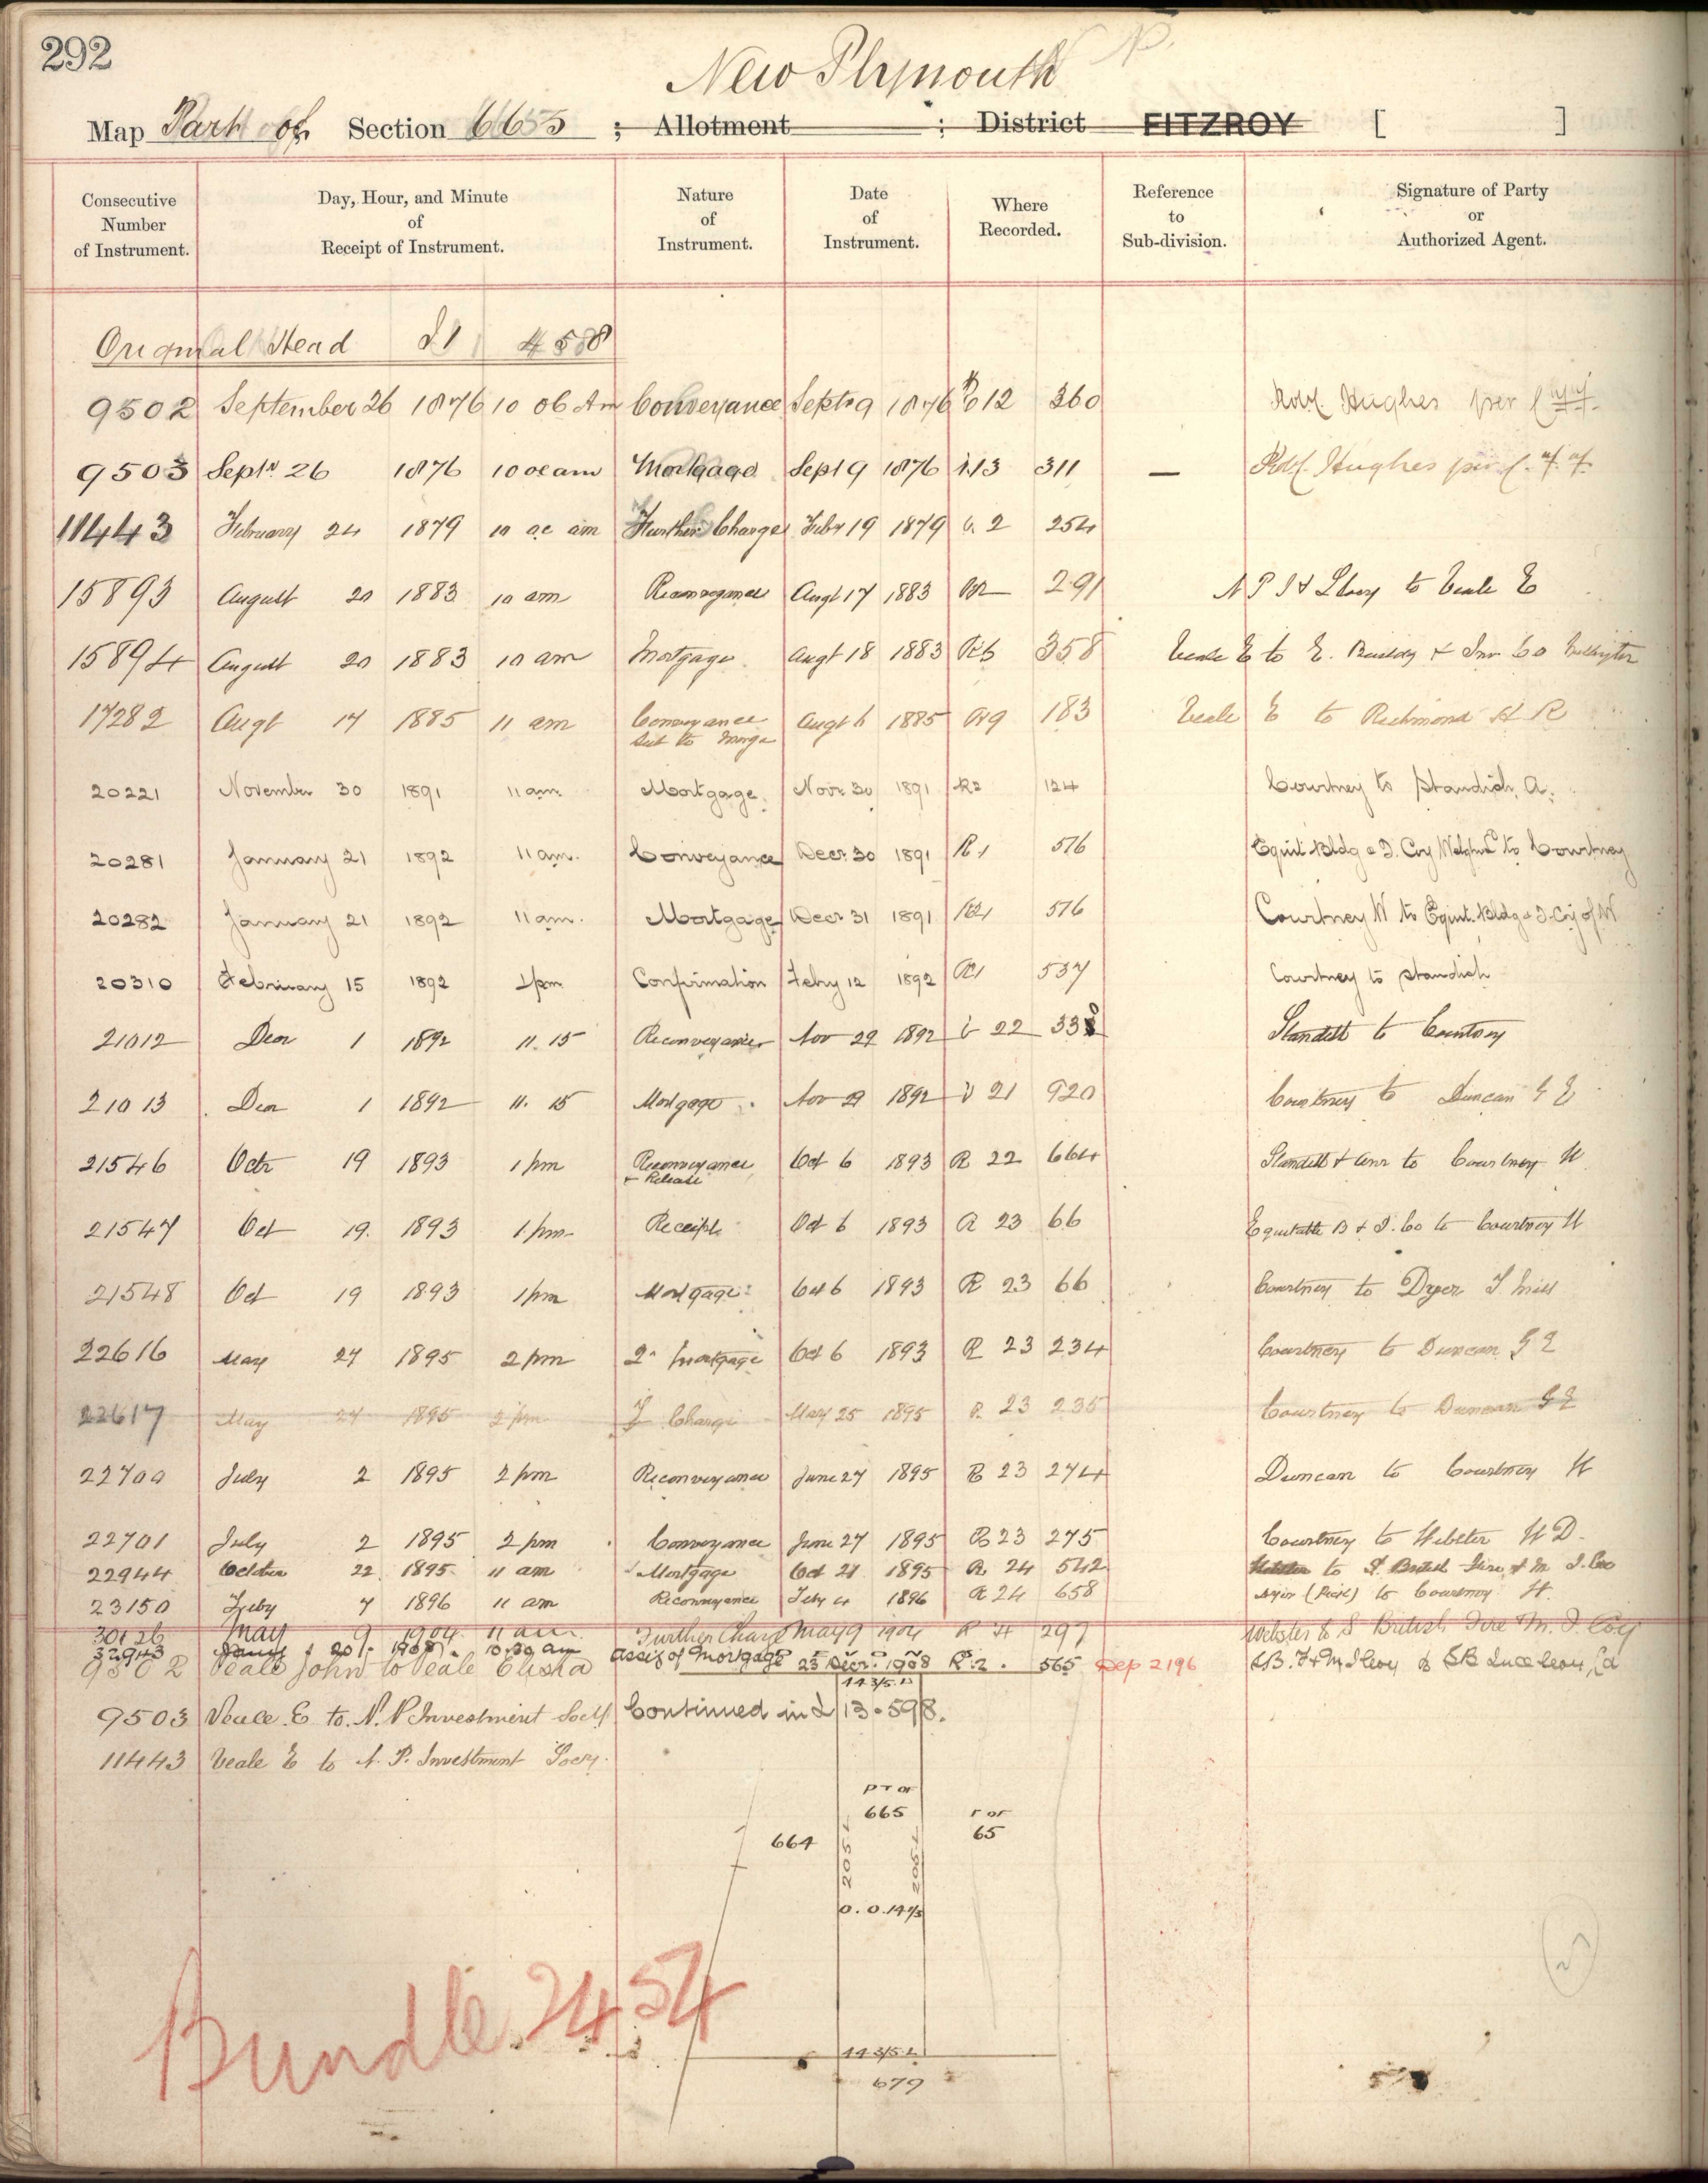 292
New Plymouth
Map Part of Section 665 ; Allotment ; District FITZROY [ ]
Consecutive Number of Instrument. Day, Hour, and Minute of Receipt of Instrument. Nature of Instrument. Date of Instrument. Where Recorded. Reference to Sub-division. Signature of Party or Authorized Agent.
Original Head I1 458
9502 September 26 1876 10 Am Conveyance Sept 9 1876 12 360 Hughes per
9503 Septr 26 1876 10 am Mortgage Sept 9 1876 13 311 — Hughes
11443 February 24 1879 10 am Further Charge Feby 19 1879 2 254
15893 August 20 1883 10 am Reconveyance Augt 17 1883 291 N P I & Socy to Veale E
15894 August 20 1883 10 am Mortgage Augt 18 1883 358 Veale E to E. Buildg & Inv Co Wellington
17282 Augt 17 1885 11 am Conveyance sub to Morge Augt 6 1885 183 Veale E to Richmond H R
20221 November 30 1891 11 am. Mortgage. Novr 30 1891 R2 124 Courtney to Standish, A.
20281 January 21 1892 11 am. Conveyance Decr 30 1891 R1 516 Equit. Bldg & I. Coy to Courtney
20282 January 21 1892 11 am. Mortgage Decr 31 1891 516 Courtney W to Equit. Bldg & I. Coy of W
20310 February 15 1892 1 pm Confirmation Feby 12 1892 R1 537 Courtney to Standish
21012 Decr 1 1892 11.15 Reconveyance Nov 29 1892 22 Standish to Courtney
21013 Decr 1 1892 11.15 Mortgage Nov 29 1892 21 920 Courtney to Duncan G E
21546 Octr 19 1893 1 pm Reconveyance & Release Oct 6 1893 R 22 664 Standish & Anr to Courtney W
21547 Oct 19. 1893 1 pm Receipt Oct 6 1893 R 23 66 Equitable B & I. Co to Courtney W
21548 Oct 19 1893 1 pm Mortgage Oct 6 1893 R 23 66 Courtney to Dyer
22616 May 27 1895 2 pm 2nd Mortgage Oct 6 1893 R 23 234 Courtney to Duncan G E
22617 May 27 1895 2 pm F Charge May 25 1895 R 23 235 Courtney to Duncan G E
22700 July 2 1895 2 pm Reconveyance June 27 1895 R 23 274 Duncan to Courtney W
22701 July 2 1895 2 pm Conveyance June 27 1895 R 23 275 Courtney to Webster W D.
22944 October 22 1895 11 am Mortgage Oct 21 1895 R 24 542 Webster to S. British Fire & M I. Co
23150 Feby 7 1896 11 am Reconveyance Feby 4 1896 R 24 658 to Courtney W.
30126 May 9 1904 11 am. Further Charge May 9 1904 R 297 Webster to S British Fire M. I. Coy
32943 20 1908 10.30 am Assig of Mortgage 23 Decr. 1908 R.2. 565 Dep 2196 S.B. F & M I Coy to SB Ince Coy Ld
9502 Veale John to Veale Elisha
9503 Veale E to N. P Investment Socy Continued in L 13-598.
11443 Veale E to N. P. Investment Socy.
14 3/5 L
PT OF
665
664
65
205 L 205 L
0. 0. 14 4/5
Bundle 2454
14 3/5 L
679